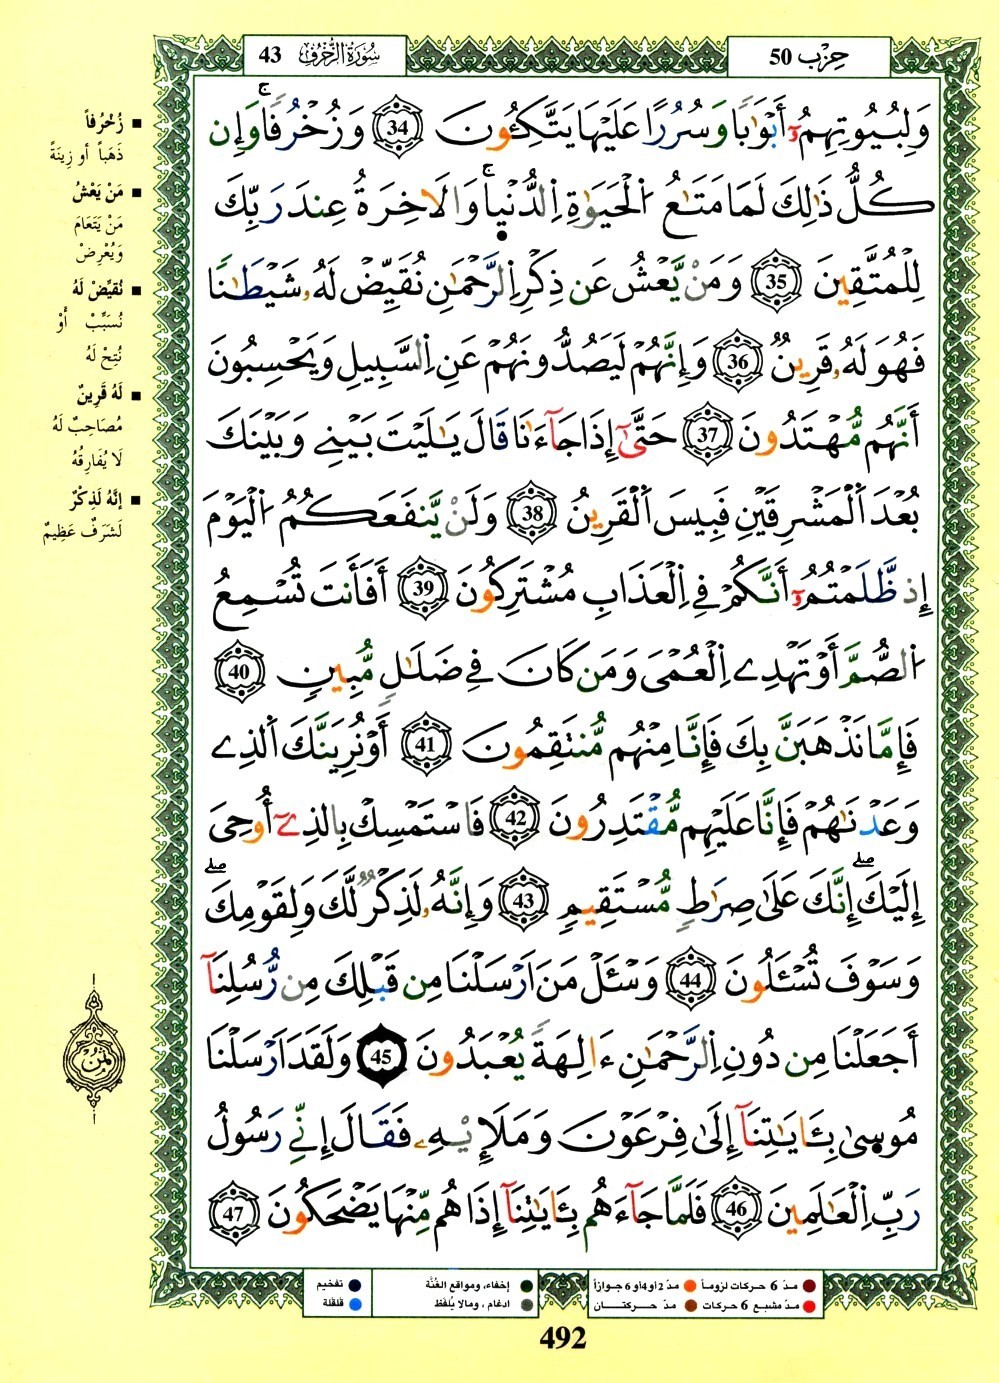 حِزْب 50
سُورَةُ الزُّخْرُفِ 43
وَلِبُيُوتِهِمُۥٓ أَبْوَٰبًا وَسُرُرًا عَلَيْهَا يَتَّكِـُٔونَ 34 وَزُخْرُفًا وَإِن
كُلُّ ذَٰلِكَ لَمَا مَتَـٰعُ اُ۬لْحَيَوٰةِ اِ۬لدُّنْيَا وَالَاخِرَةُ عِندَ رَبِّكَ
لِلْمُتَّقِينَ 35 وَمَنْ يَّعْشُ عَن ذِكْرِ اِ۬لرَّحْمَـٰنِ نُقَيِّضْ لَهُۥ شَيْطَـٰنًا
فَهُوَ لَهُۥ قَرِينٌ 36 وَإِنَّهُمْ لَيَصُدُّونَهُمْ عَنِ اِ۬لسَّبِيلِ وَيَحْسِبُونَ
أَنَّهُم مُّهْتَدُونَ 37 حَتَّىٰٓ إِذَا جَآءَٰنَا قَالَ يَـٰلَيْتَ بَيْنِے وَبَيْنَكَ
بُعْدَ اَ۬لْمَشْرِقَيْنِ فَبِيسَ اَ۬لْقَرِينُ 38 وَلَنْ يَّنفَعَكُمُ اُ۬لْيَوْمَ
إِذ ظَّلَمْتُمُۥٓ أَنَّكُمْ فِے اِ۬لْعَذَابِ مُشْتَرِكُونَ 39 أَفَأَنتَ تُسْمِعُ
اُ۬لصُّمَّ أَوْ تَهْدِے اِ۬لْعُمْىَ وَمَن كَانَ فِے ضَلَـٰلٍ مُّبِينٍ 40
فَإِمَّا نَذْهَبَنَّ بِكَ فَإِنَّا مِنْهُم مُّنتَقِمُونَ 41 أَوْ نُرِيَنَّكَ اَ۬لذِے
وَعَدْنَـٰهُمْ فَإِنَّا عَلَيْهِم مُّقْتَدِرُونَ 42 فَاسْتَمْسِكْ بِالذِےٓ أُوحِىَ
إِلَيْكَ إِنَّكَ عَلَىٰ صِرَٰطٍ مُّسْتَقِيمٍ 43 وَإِنَّهُۥ لَذِكْرٌ لَّكَ وَلِقَوْمِكَ
وَسَوْفَ تُسْـَٔلُونَ 44 وَسْـَٔلْ مَنَ اَرْسَلْنَا مِن قَبْلِكَ مِن رُّسُلِنَآ
أَجَعَلْنَا مِن دُونِ اِ۬لرَّحْمَـٰنِ ءَالِهَةً يُعْبَدُونَ 45 وَلَقَدَ اَرْسَلْنَا
مُوسَىٰ بِـَٔايَـٰتِنَآ إِلَىٰ فِرْعَوْنَ وَمَلَإِيْهِۦ فَقَالَ إِنِّے رَسُولُ
رَبِّ اِ۬لْعَـٰلَمِينَ 46 فَلَمَّا جَآءَهُم بِـَٔايَـٰتِنَآ إِذَا هُم مِّنْهَا يَضْحَكُونَ 47
■ زُخْرُفاً
ذَهَباً أو زِينَةً
■ مَنْ يَعْشُ
مَنْ يَتَعَامَ
وَيُعْرِضْ
■ نُقَيِّضْ لَهُ
نُسَبِّبْ أَوْ
نُتِحْ لَهُ
■ لَهُ قَرِينٌ
مُصَاحِبٌ لَهُ
لَا يُفَارِقُهُ
■ إِنَّهُ لَذِكْرٌ
لَشَرَفٌ عَظِيمٌ
ثُمُنُ
● مدّ 6 حركات لزوماً ● مدّ 2 أو 4 أو 6 جوازاً
● مدّ مشبع 6 حركات ● مدّ حركتـــان
● إخفاء، ومواقع الغُنَّة
● ادغام ، ومالا يُلفَظ
● تفخيم
● قلقلة
492